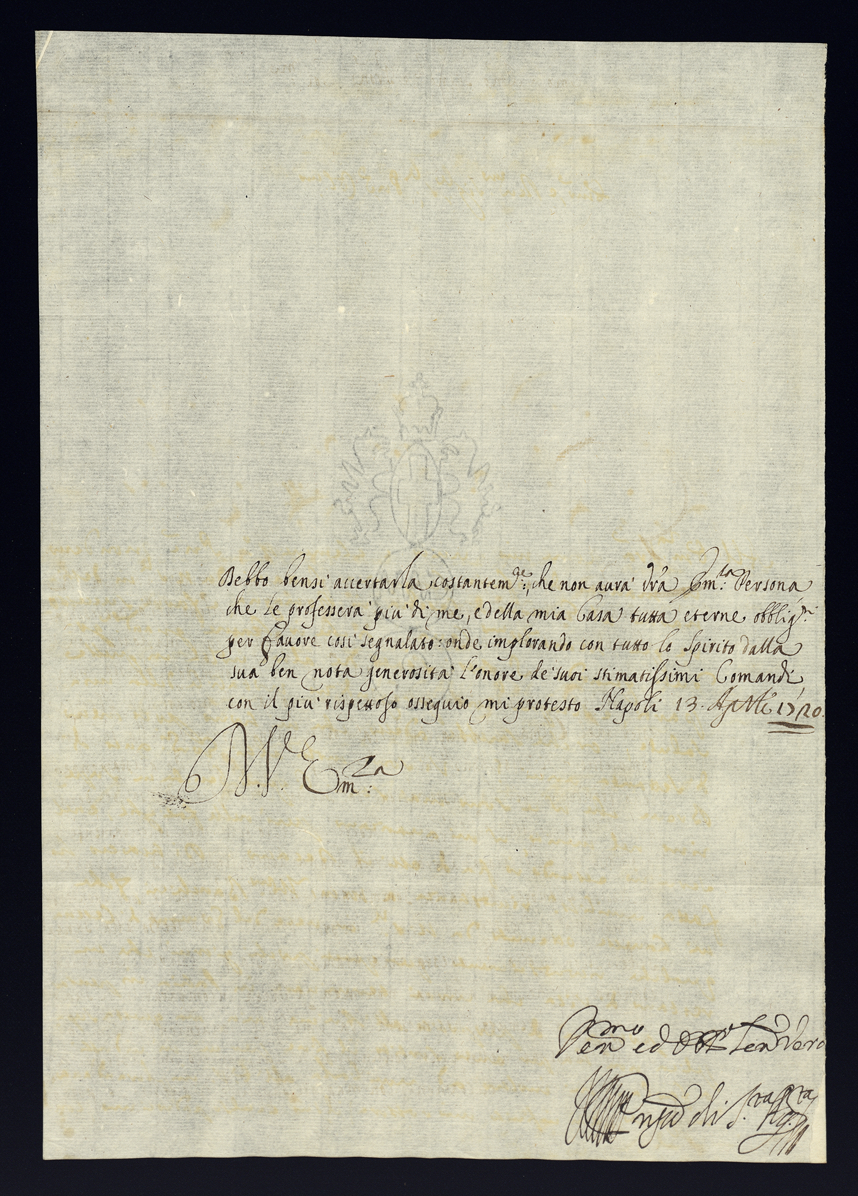 Debbo bensi accertarla costantem.te, che non aurà V'ra Em.za Persona
che le professerà più di me, e della mia Casa tutta eterne obblig.ni
per favore così segnalato: onde implorando con tutto lo Spirito dalla
sua ben nota generosità l'onore de' suoi stimatissimi Comandi
con il più rispettoso ossequio mi protesto Napoli 13. Aprile 1720.
D. V. Em.za
ed Serv
di S.